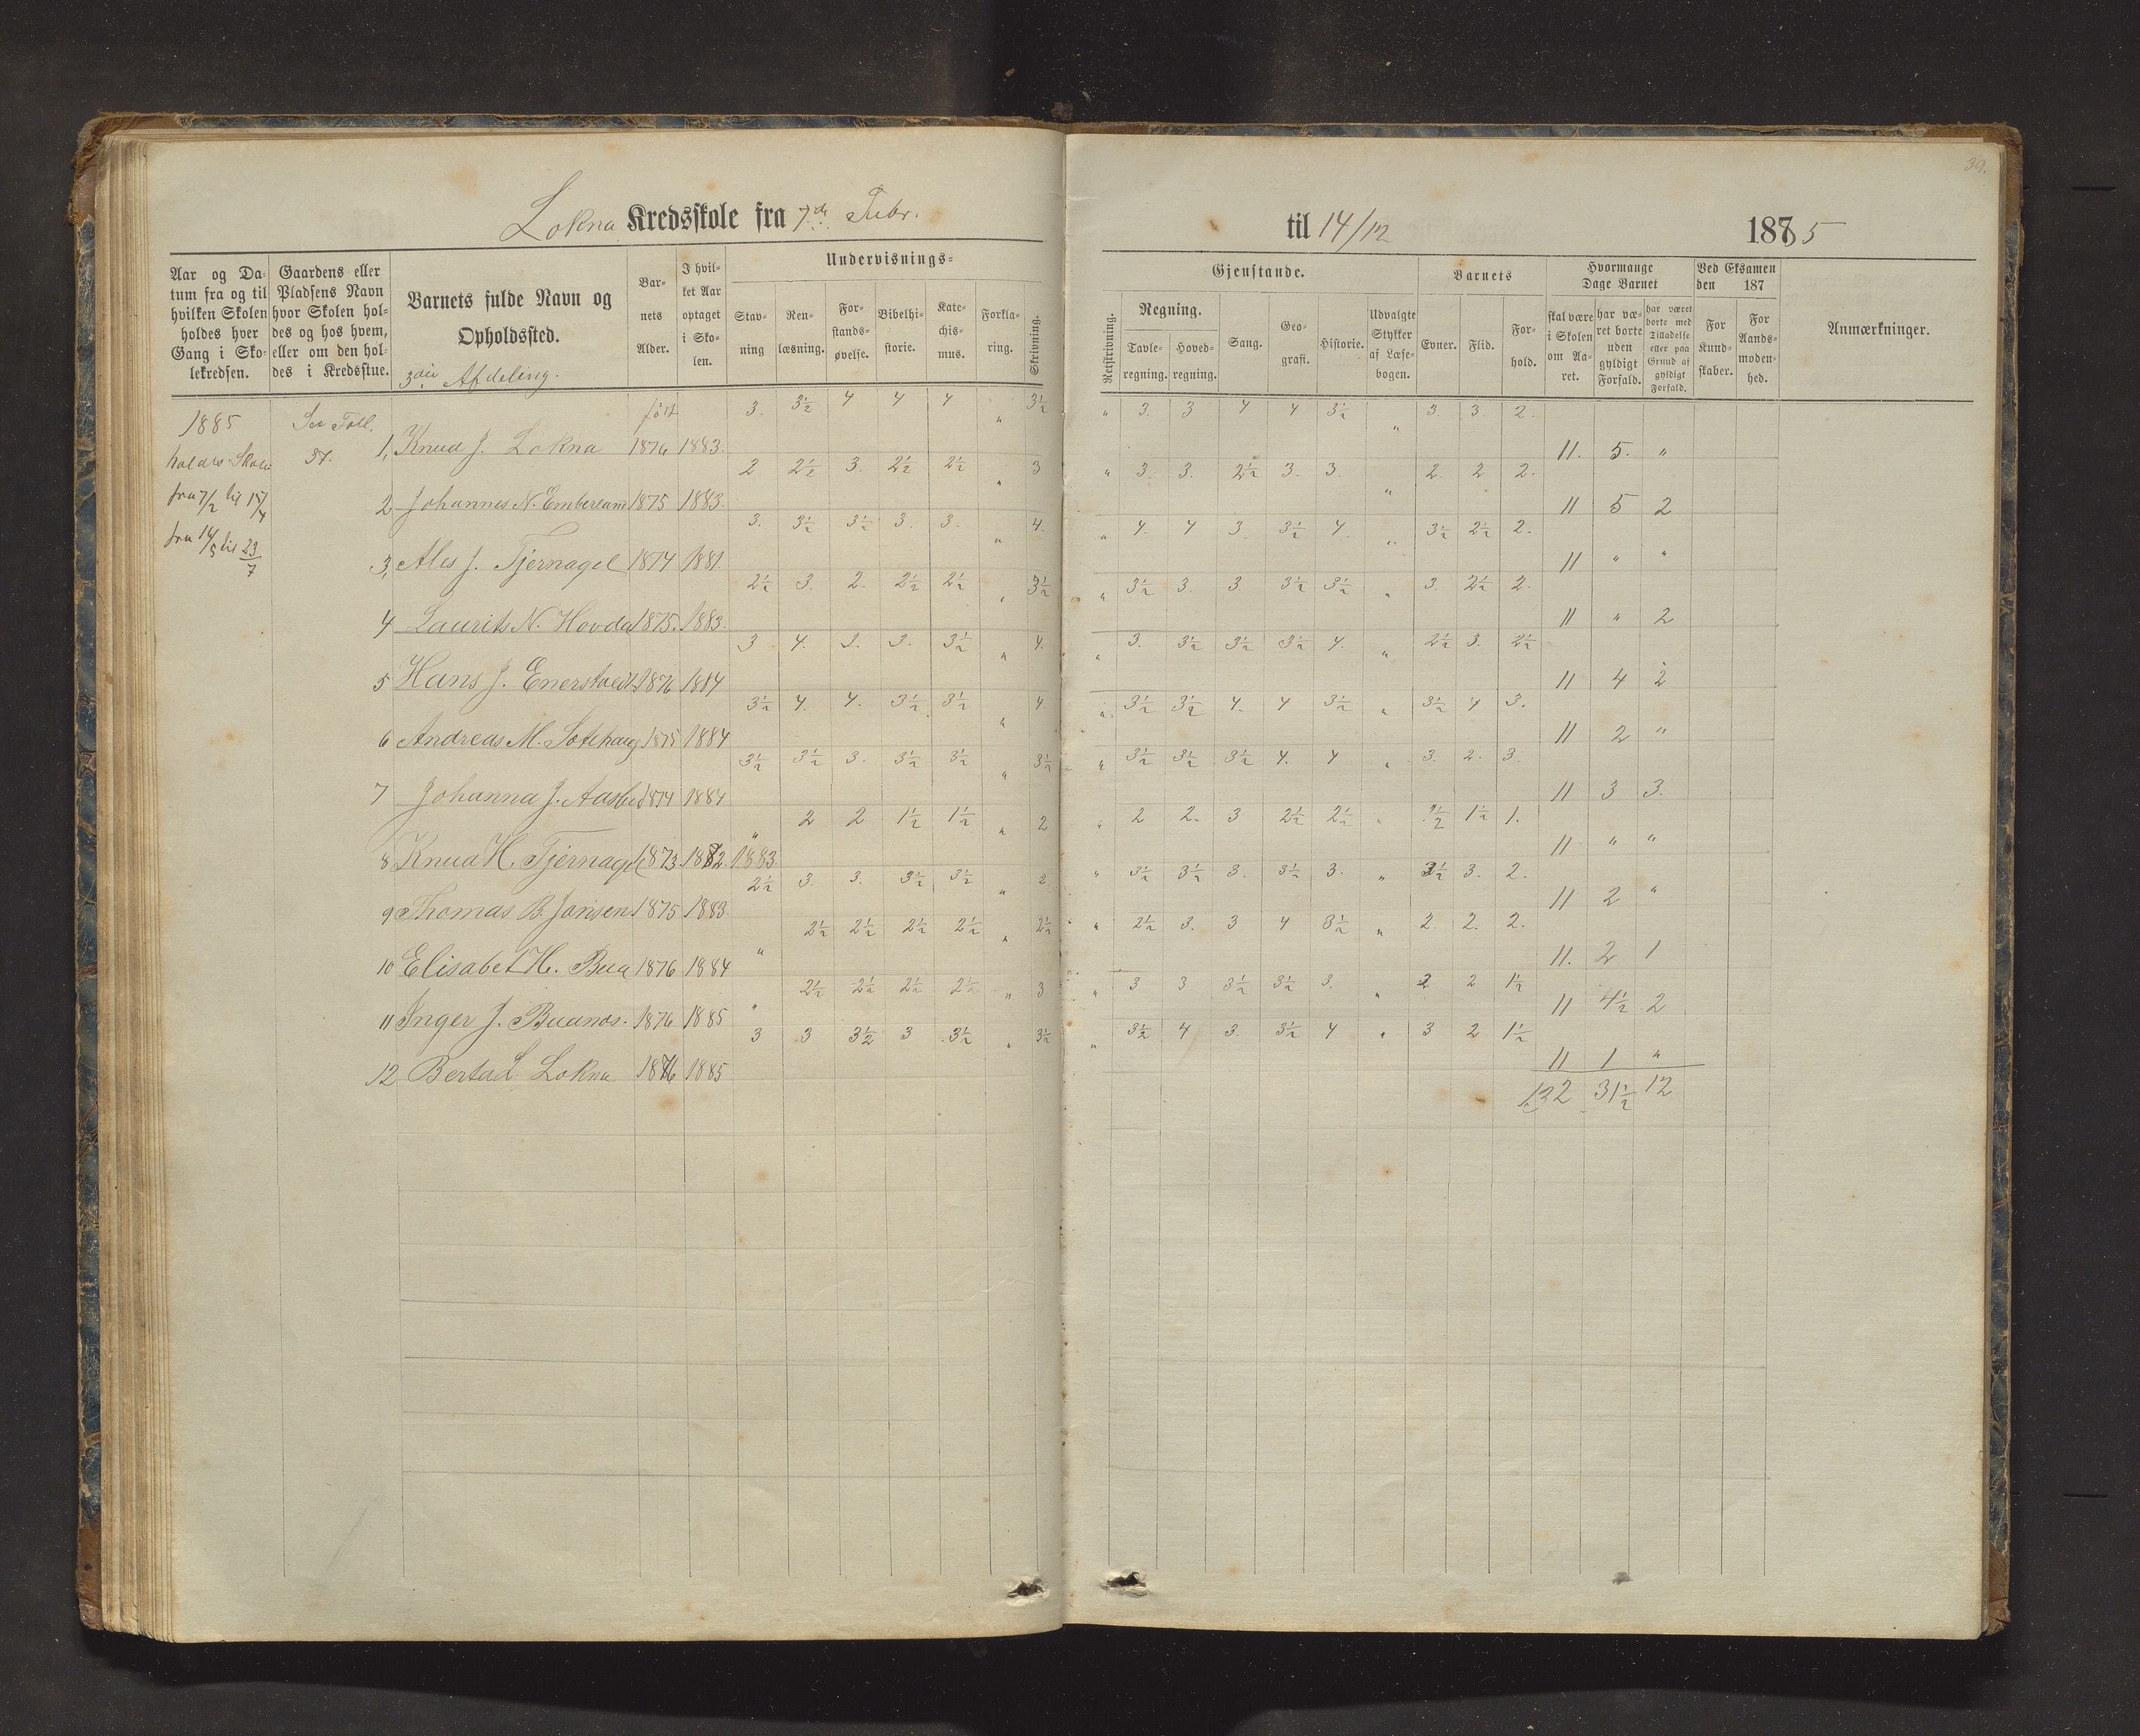 39.
Lokna Kredsskole fra 7de Febr. til 14/12 1885
Aar og Datum fra og til hvilken Skolen holdes hver Gang i Skolekredsen.
Gaardens eller Pladsens Navn hvor Skolen holdes og hos hvem, eller om den holdes i Kredsstue.
Barnets fulde Navn og Opholdssted.
3die Afdeling.
Barnets Alder.
I hvilket Aar optaget i Skolen.
Undervisnings-
Stavning
Renlæsning.
Forstandsøvelse.
Bibelhistorie.
Katechismus.
Forklaring.
Skrivning.
Gjenstande.
Retskrivning.
Regning.
Tavleregning.
Hovedregning.
Sang.
Geografi.
Historie.
Udvalgte Stykker af Læsebogen.
Barnets
Evner.
Flid.
Forhold.
Hvormange Dage Barnet
skal være i Skolen om Aaret.
har været borte uden gyldigt Forfald.
har været borte med Tilladelse eller paa Grund af gyldigt Forfald.
Ved Eksamen den 187
For Kundskaber.
For Aandsmodenhed.
Anmærkninger.
1885
holdes Skole
fra 7/2 til 15/4
fra 14/5 til 23/7
37.
født
1, Knud J. Lokna 1876 1883. 3. 3½ 4 4 4 " 3½ " 3. 3 4 4 3½ " 3. 3. 2. 11. 5. "
2 Johannes N. 1875 1883. 2 2½ 3. 2½ 2½ " 3 " 3. 3. 2½ 3. 3. " 2. 2 2. 11 5 2
3, J. Tjernagel 1874 1881. 3. 3½ 3½ 3. 3. " 4. " 4. 4 3 3½ 4. " 3½ 2½ 2. 11 " "
4 Laurits N. Hovda 1875. 1883. 2½ 3. 2. 2½ 2½ " 3½ " 3½ 3. 3. 3½ 3½ " 3. 2½ 2. 11 " 2
5 Hans J. 1876 1884 3 4. 3. 3. 3½ " 4. " 3. 3½ 3½ 3½ 4. " 2½ 3. 2½ 11 4 2
6 Andreas M. 1875 1884 3½ 4. 4. 3½ 3½ " 4 " 3½ 3½ 4. 4 3½ " 3½ 4 3. 11 2 "
7 Johanna J. 1874 1884 3½ 3½ 3. 3½ 3½ " 3½ " 3½ 3½ 3½ 4. 4 " 3. 2. 3. 11 3 3.
8 Knud H. Tjernagel 1873. 1882. 1883 " 2 2 1½ 1½ " 2 " 2 2. 3 2½ 2½ " 1½ 1. 11 " "
9 Thomas B. Jansen 1875 1883. 2½ 3. 3. 3½ 3½ " 2. " 3½ 3½ 3. 3½ 3. " 3. 2. 11 2 "
10 Elisabet H. Bua 1876 1884 " 2½ 2½ 2½ 2½ " 2½ " 2½ 3. 3 4 3½ " 2 2. 2. 11. 2 1
11 Inger J. Buanæs. 1876 1885 " 2½ 2½ 2½ 2½ " 3 " 3 3 3½ 3½ 3. " 2 2 1½ 11 4½ 2
12 Lokna 1876 1885 3 3 3½ 3 3½ " 3½ " 3½ 4 3. 3½ 4 " 3 2 1½ 11 1 "
132 31½ 12